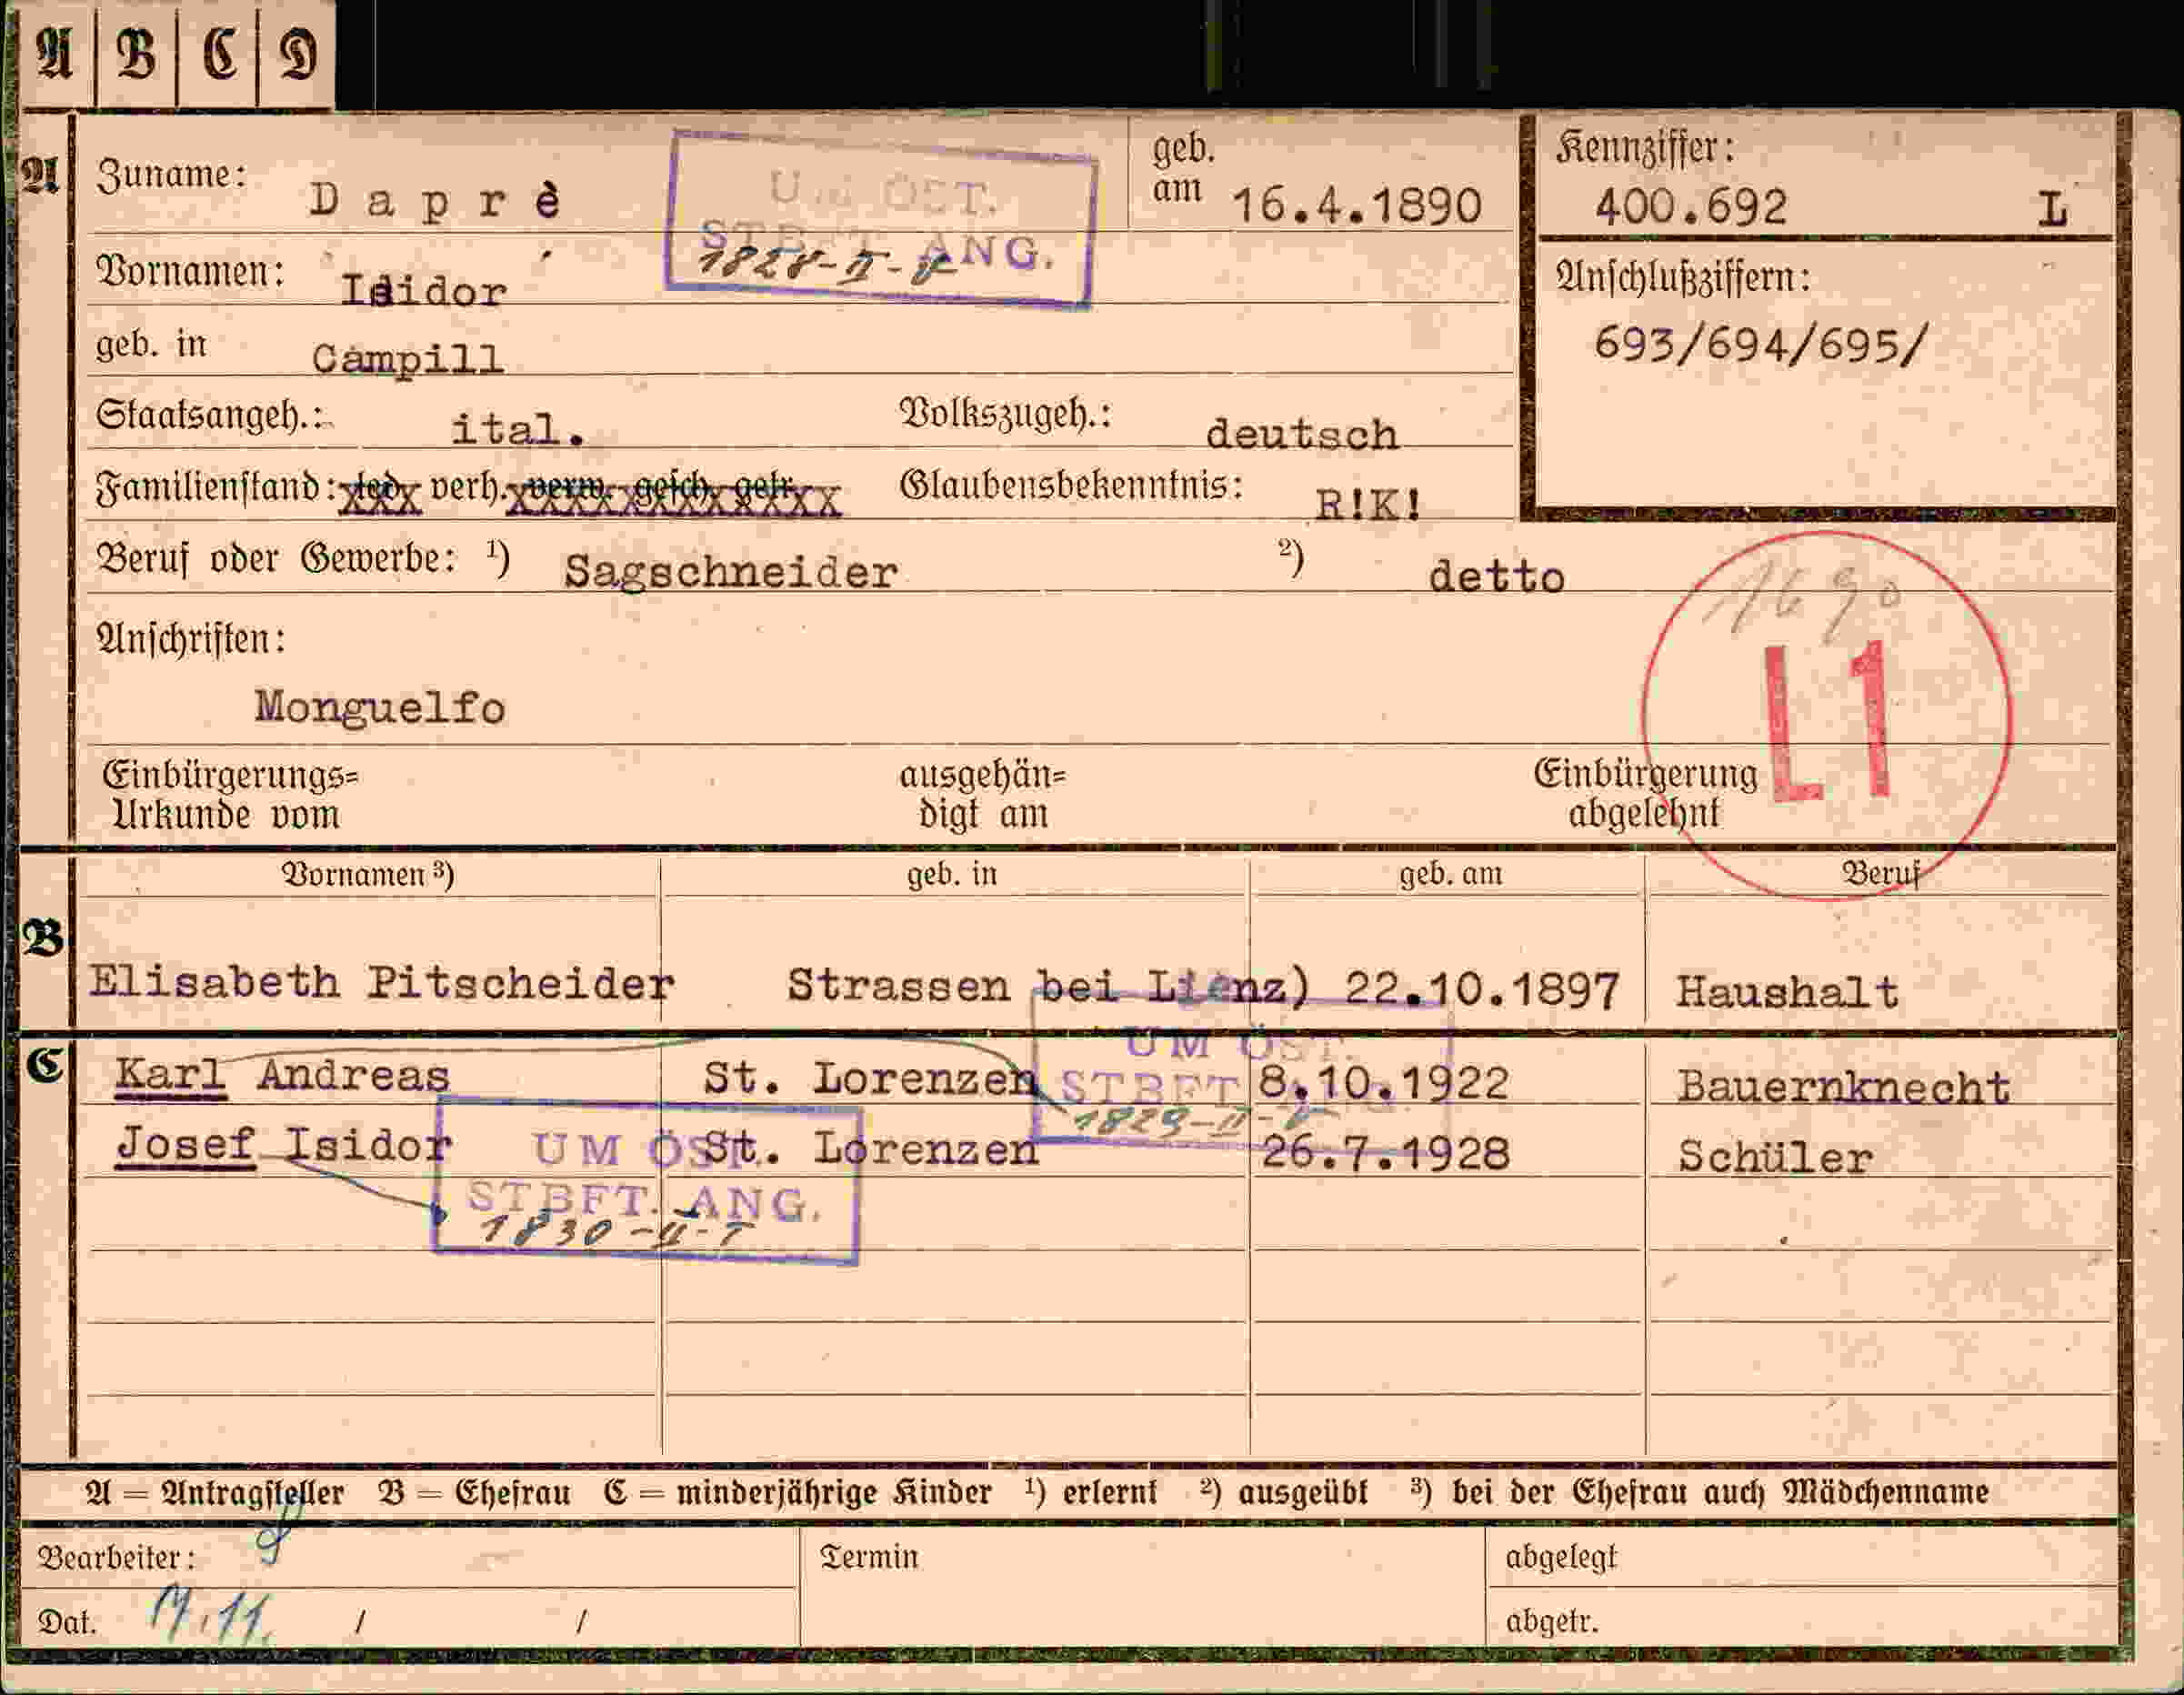 A B C D
A Zuname: Daprè geb. am 16.4.1890 Kennziffer: 400.692 L
UM ÖST. STBFT. ANG. 1828-II-
Vornamen: Isidor
Anschlußziffern: 693/694/695/
geb. in Campill
Staatsangeh.: ital. Volkszugeh.: deutsch
Familienstand: led. verh. verw. gesch. getr. Glaubensbekenntnis: R!K!
Beruf oder Gewerbe: ¹) Sagschneider ²) detto
1690
Anschriften:
L1
Monguelfo
Einbürgerungs= ausgehän= Einbürgerung
Urkunde vom digt am abgelehnt
Vornamen ³) geb. in geb. am Beruf
B
Elisabeth Pitscheider Strassen bei Lienz) 22.10.1897 Haushalt
UM ÖST.
C Karl Andreas St. Lorenzen STBFT 8.10.1922 Bauernknecht
1829-II-
Josef Isidor UM ÖST. St. Lorenzen 26.7.1928 Schüler
STBFT. ANG.
1830-II-
A = Antragsteller B = Ehefrau C = minderjährige Kinder ¹) erlernt ²) ausgeübt ³) bei der Ehefrau auch Mädchenname
Bearbeiter: Termin abgelegt
Dat. 11. / / abgetr.